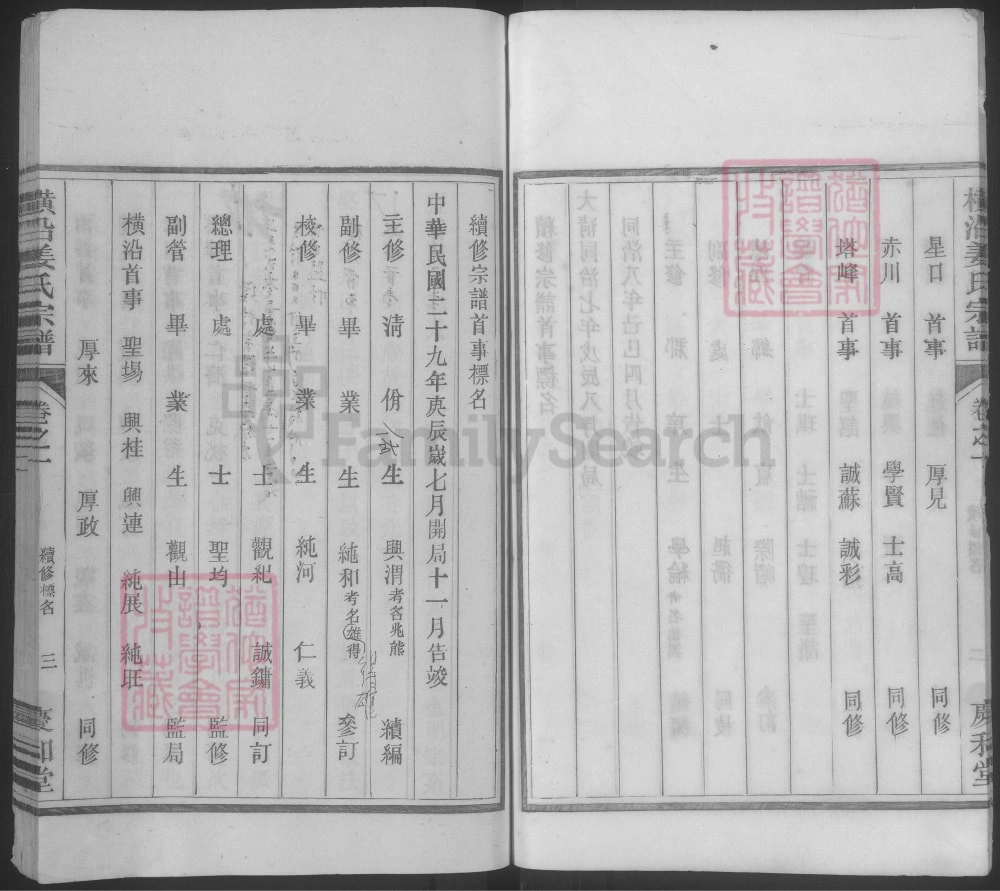 橫沿姜氏宗譜
卷之一
慶和堂
星口 首事 厚見 同修
赤川 首事 學賢 士高 同修
塔峰 首事 誠蘇 誠彩 同修
續修宗譜首事標名
中華民國二十九年庚辰歲七月開局十一月告竣
主修 清 佾 生 興渭考名兆熊 續編
副修 畢 業 生 純和考名雄得 參訂
校修 畢 業 生 純河 仁義
處 士 觀紀 誠鏞 同訂
總理 處 士 聖均 監修
副管 畢 業 生 觀山 監局
橫沿首事 聖場 興桂 興連 純展 純班
厚來 厚政 同修
橫沿姜氏宗譜
卷之一
續修標名
三
慶和堂
FamilySearch